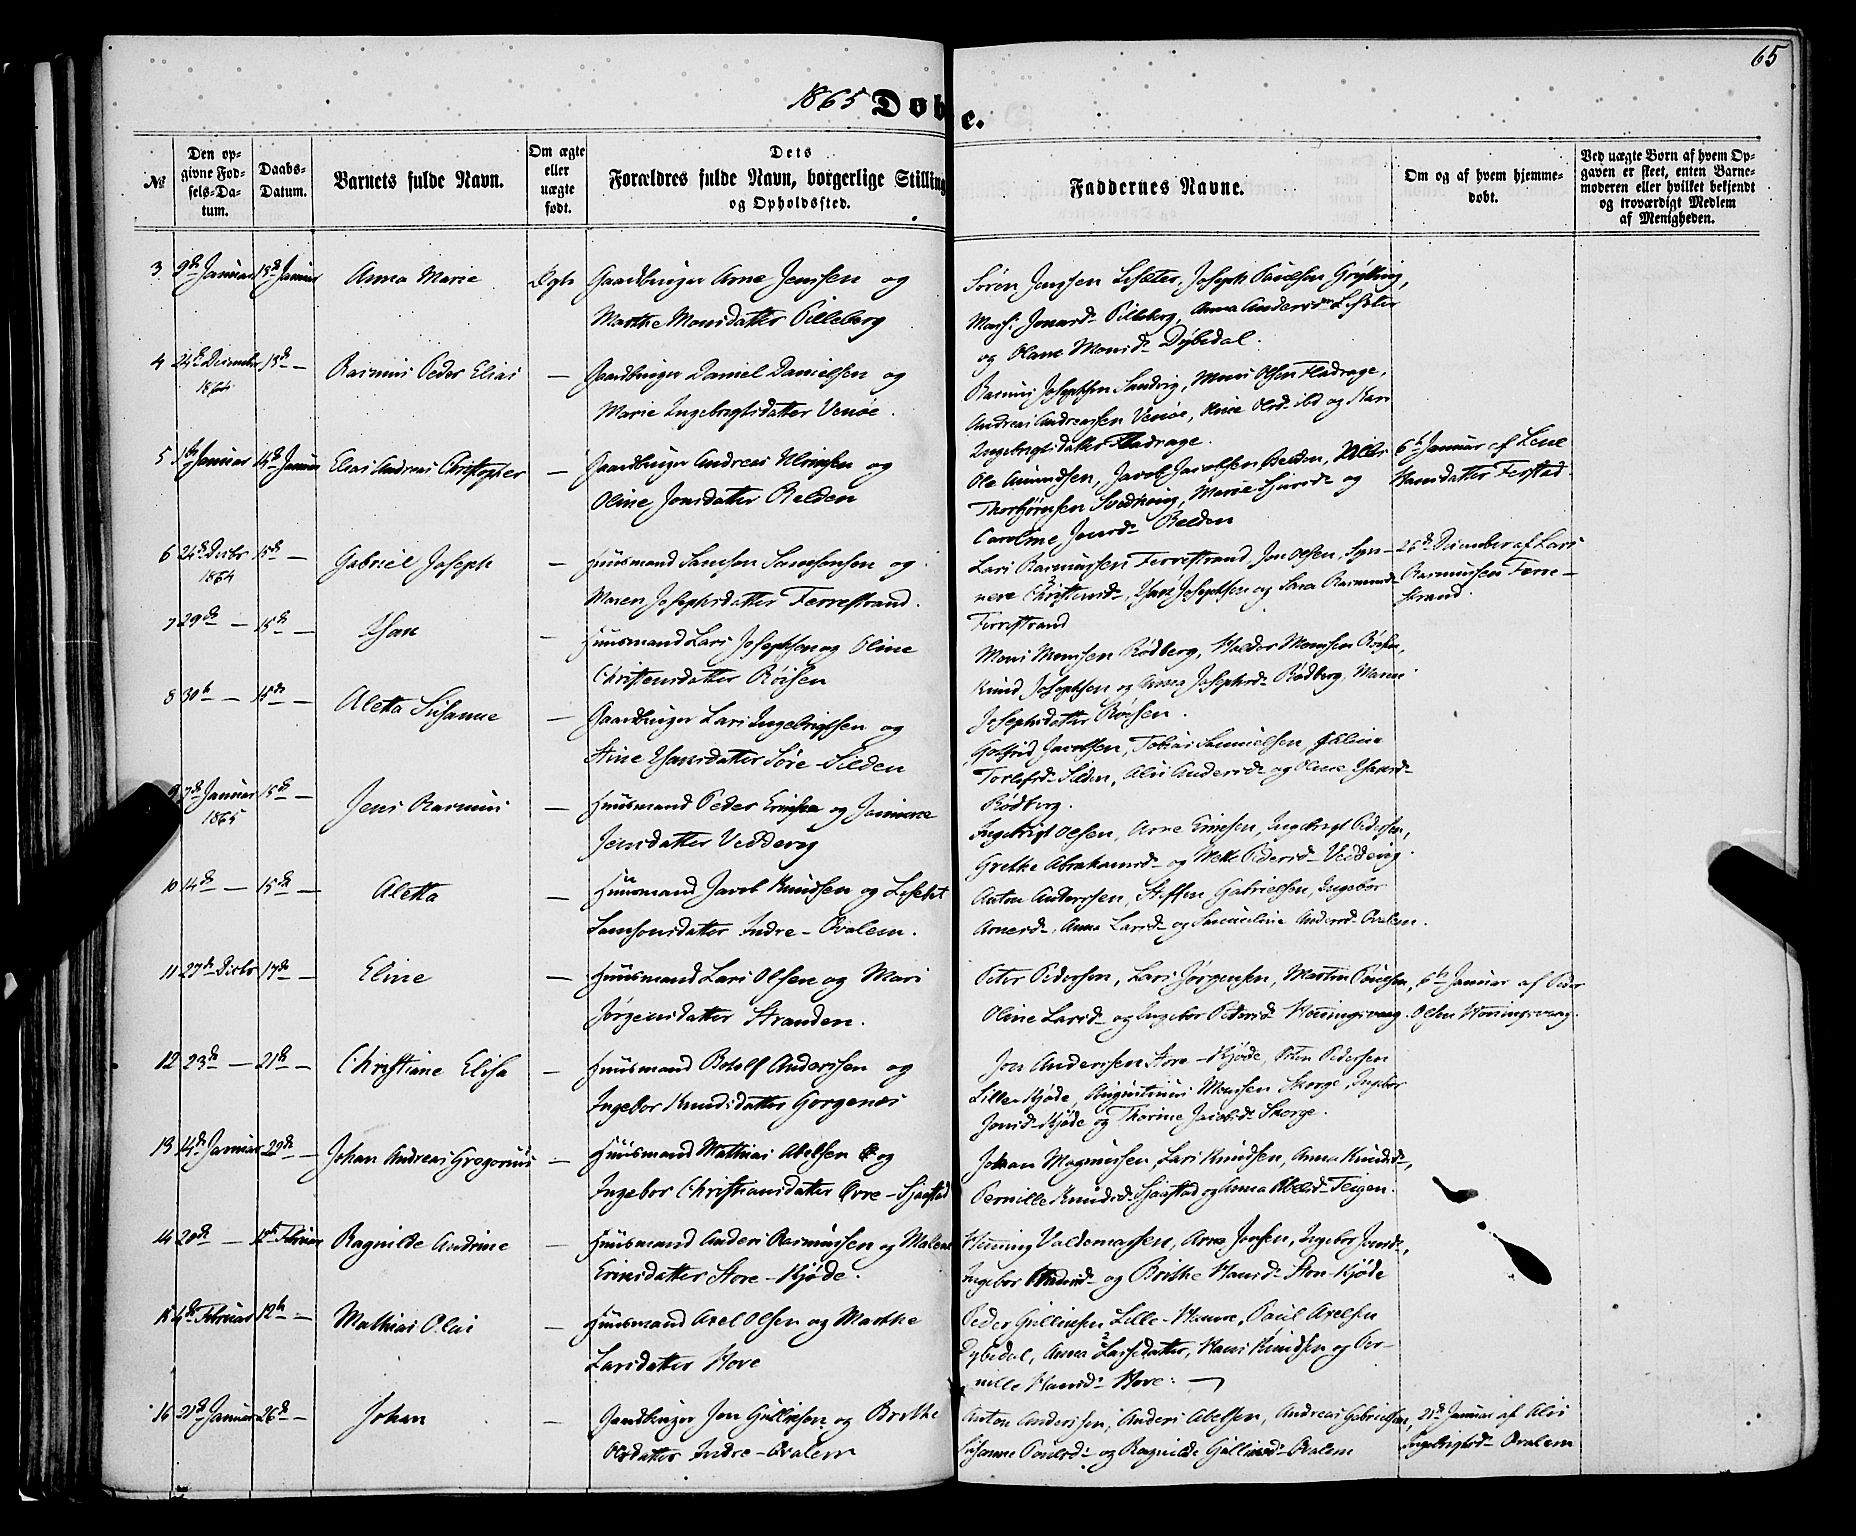 65
1865 Døbte.
№
Den opgivne Fødsels-Datum.
Daabs-Datum.
Barnets fulde Navn.
Om ægte eller uægte født.
Dets Forældres fulde Navn, borgerlige Stilling og Opholdssted.
Faddernes Navne.
Om og af hvem hjemmedøbt.
Ved uægte Børn af hvem Opgaven er skeet, enten Barnemoderen eller hvilket bekjendt og troværdigt Medlem af Menigheden.
3 9de Januar 15de Januar Anna Marie Ægte Gaardbruger Arne Jensen og
Marthe Monsdatter Pilleberg
Søren Jensen Lisæter, Joseph Paulsen Grytting,
Pilleberg, Anna Andersdr Lisæter
og Olane Monsd. Dybedal.
4 24de December 1864 15de — Rasmus Peder Elias — Gaardbruger Daniel Danielsen og
Marie Ingebrigtsdatter Venøe.
Rasmus Josephsen Sandvig, Mons Olsen Fladrage,
Andreas Andreassen Venøe, Oline Olsd. ibd og Kari
Ingebrigtsdatter Fladrage.
5 1ste Januar 15de Januar Elias Andreas Christopher — Gaardbruger Andreas Ulriksen og
Oline Jonsdatter Relden
Ole Amundsen, Jacob Jacobsen Relden, Nils
Thorbjørnsen og
Caroline Jonsd. Relden
6te Januar af Lene
Hansdatter Ferstad
6 24de Decbr 1864 15de — Gabriel Joseph — Huusmand Samson Samsonsen og
Maren Josephsdatter Ferrestrand.
Lars Rasmussen Ferrestrand, Jon Olsen, Syn-
neve Christensd., Hans Josephsen og Sara Rasmusd.
Ferrestrand
26de December af Lars
Rasmussen Ferre-
strand.
7 29de — 15de — Hans — Huusmand Lars Josephsen og Oline
Christensdatter Røisen
Mons Monsen Rødberg, Halder Monsen Røisen,
Knud Josephsen og Anna Josephsd. Rødberg, Maren
Josephsdatter Røisen.
8 30te — 15de — Aletta Susanne — Gaardbruger Lars Ingebrigtsen og
Stine Hansdatter Søre-Silden
Gotfrid Jacobsen, Tobias Samuelsen,
Torlefsd. Silden, Andersd. og Oline Hansd.
Rødberg.
9 7de Januar 1865 15de — Jens Rasmus — Huusmand Peder Eriksen og
Jensdatter Veddevig
Ingebrigt Olsen, Arne Ernsen, Ingebrigt Pedersen,
Grethe Abrahamsd. og Mette Pedersd. Veddevig.
10 14de — 15de — Aletta — Huusmand Jacob Knudsen og Lisebet
Samsonsdatter Indre-Ovalem.
Anton Anderssen, Steffen Gabrielsen, Ingebor
Arnesd., Anna Larsd. og Samueline Andersd. Ovalem.
11 27de Decbr 17de — Eline — Huusmand Lars Olsen og Mari
Jørgensdatter Stranden.
Peter Pedersen, Lars Jørgensen, Martin Poulsen,
Oline Larsd. og Ingebor Pedersd. Honningsvaag.
6te Januar af Peder
Olsen Honningsvaag.
12 23de — 21de — Christiane Elisa — Huusmand Botolf Anderssen og
Ingebor Knudsdatter Gorgenæs
Jon Anderssen Store-Kjøde, Peder Pedersen
Lille-Kjøde, Augustinus Monsen Skorge, Ingebor
Jonsd. Kjøde og Thorine Jacobsd. Skorge.
13 14de Januar 29de — Johan Andreas Gregorius — Huusmand Mathias Abelsen og
Ingebor Christiansdatter Øvre-Sjaastad
Johan Magnussen, Lars Knudsen, Anna Knudsd.,
Pernille Knudsd. Sjaastad og Anna Abelsd. Teigen.
14 20de — 12te Februar Ragnilde Andrine — Huusmand Anders Rasmussen og Malene
Erinsdatter Store-Kjøde.
Henning Valdemarsen, Arne Jonsen, Ingebor Jonsd.,
Ingebor og Brithe Hansd. Store-Kjøde
15 4de Februar 12te — Mathias Olai — Huusmand Axel Olsen og Marthe
Larsdatter Hove
Peder Gullaksen Lille-Hanne, Paul Axelsen
Dybedal, Anna Larsdatter, Hans Knudsen og Per-
nille Hansd. Hove.
16 21de Januar 26de — Johan — Gaardbruger Jon Gullaksen og Brithe
Olsdatter Indre-Ovalem
Anton Anderssen, Anders Abelsen, Andreas Gabrielsen,
Susanne Poulsd. og Ragnilde Gullaksd. Ovalem
21de Januar af
Ingebrigtsd. Ovalem